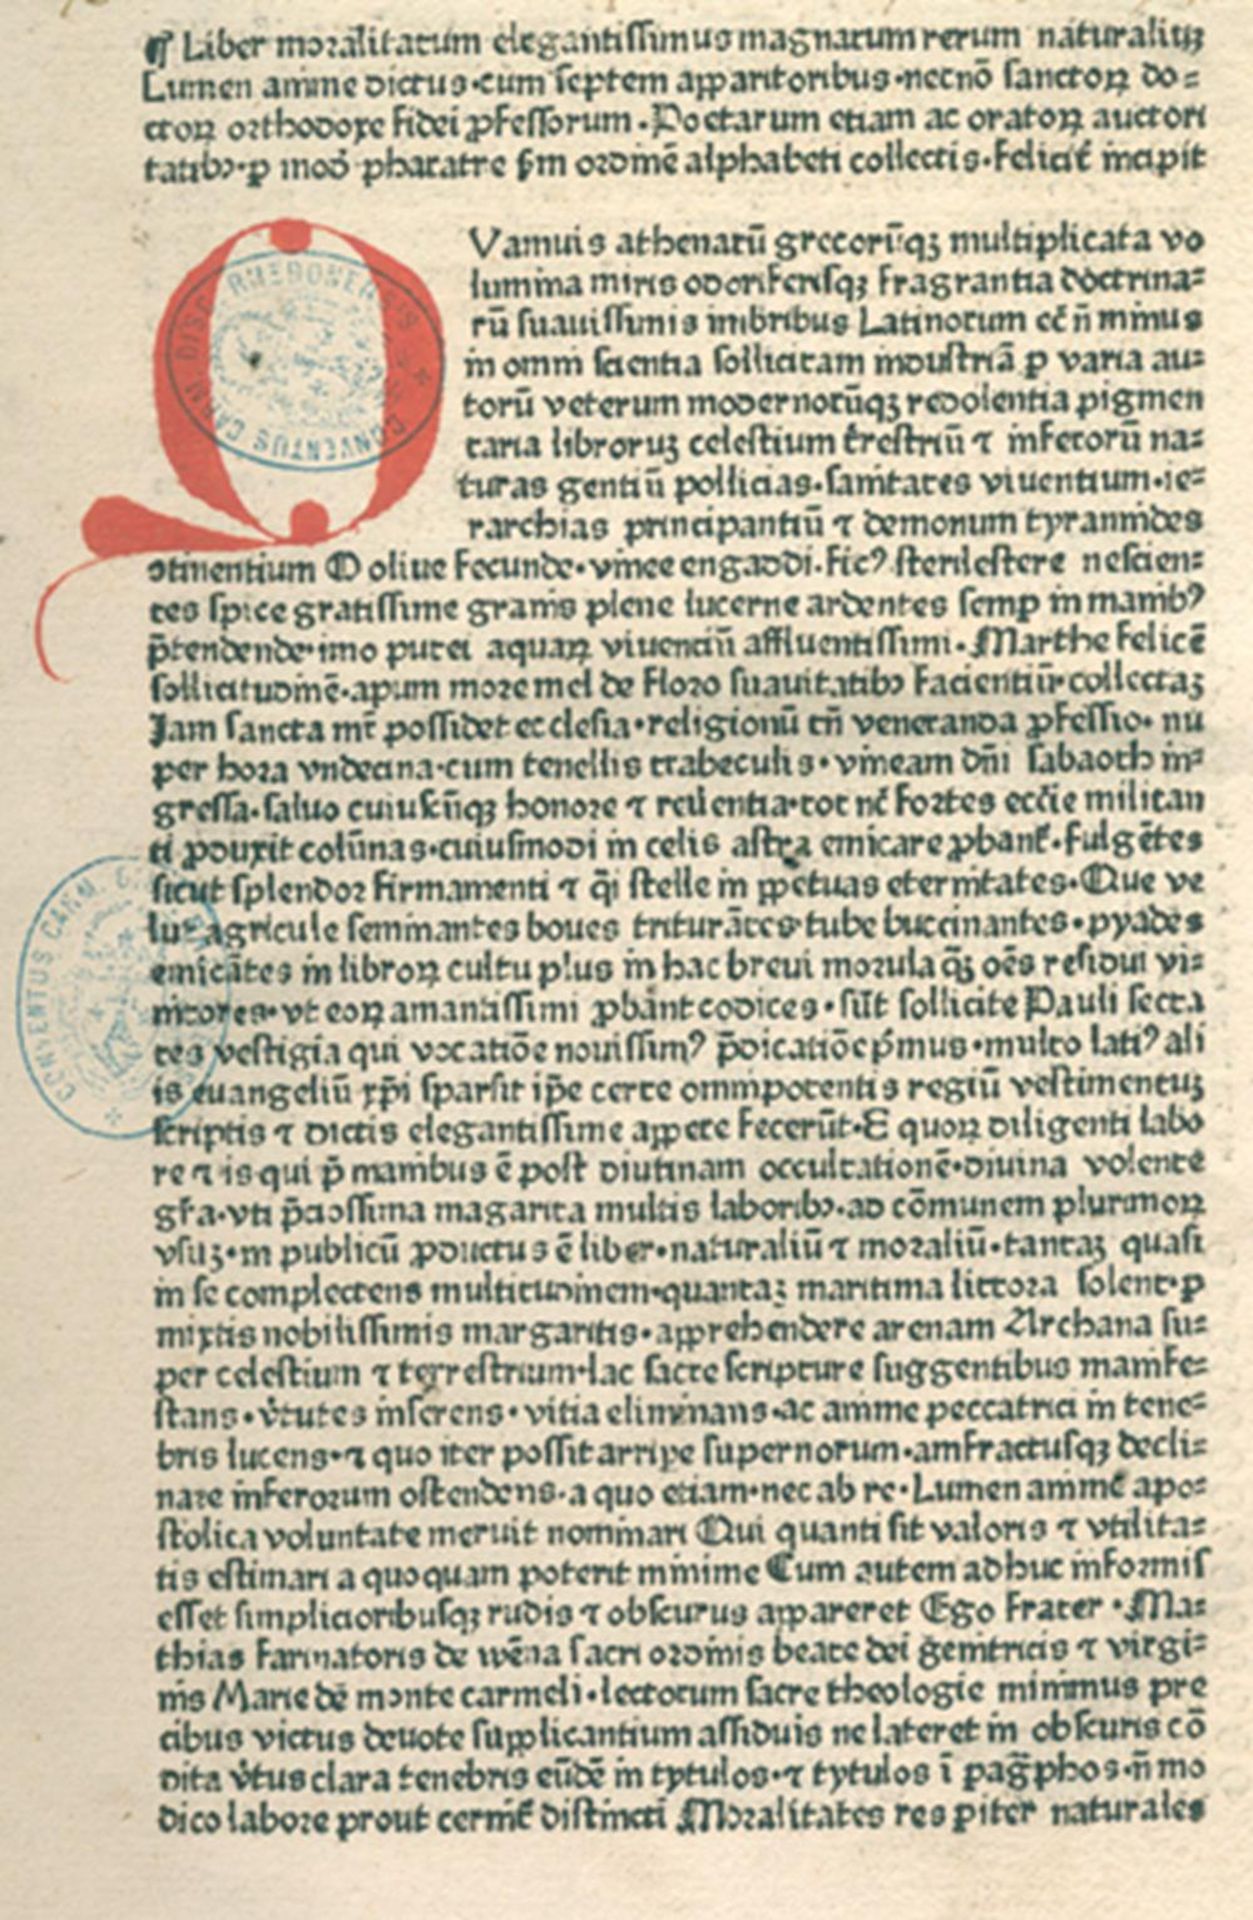 ¶ Liber moralitatum elegantissimus magnarum rerum naturaliuʒ
Lumen anime dictus·cum septem apparitoribus·necnō sanctoꝝ do=
ctoꝝ orthodoxe fidei ꝓfessorum·Poetarum etiam ac oratoꝝ auctori
tatibꝰ·ꝑ modū pharatre ẜm ordinē alphabeti collectis·Felicit̄ incipit
Quamuis athenarū grecorūqʒ multiplicata vo
lumina miris odoriferisqʒ fragrantia doctrina=
rū suauissimis imbribus Latinorum et̄ n̄ minus
in omni scientia sollicitam industriā ꝑ varia au=
torū veterum modernorūqʒ redolentia pigmen
taria libroruʒ celestium t̄restriū ⁊ inferorū na=
turas gentiū pollicias·sanitates viuentium·ie=
rarchias principantiū ⁊ demonum tyrannides
ↄtinentium O oliue fecunde·vinee engaddi·ficꝰ sterilestere nescien=
tes spice gratissime granis plene lucerne ardentes semꝑ in manibꝰ
p̄tendende·imo putei aquaꝝ viuenciū affluentissimi·Marthe felicē
sollicitudinē·apum more mel de floro suauitatibꝰ facientiū·collectaʒ
Jam sancta mr̄ possidet ecclesia·religionū tn̄ veneranda ꝓfessio·nu
per hora vndecina·cum tenellis trabeculis·vineam dn̄i sabaoth in=
gressa·saluo cuiuscūqʒ honore ⁊ reu̇entia·tot nc̄ fortes ecc̄ie militan
ti ꝓduxit colūnas·cuiusmodi in celis astra emicare ꝓbant̄·fulgētes
sicut splendor firmamenti ⁊ q̄i stelle in ꝑpetuas eternitates·Que ve
lut agricule seminantes boues triturātes·tube buccinantes·pyades
emicātes in libroꝝ cultu plus in hac breui morula q̄ʒ oēs residui vi=
nitores·vt eoꝝ amantissimi ꝓbant codices·sūt sollicite Pauli secta
tes vestigia qui vocatiōe nouissimꝰ p̄dicatiōe p̄mus·multo latiꝰ ali
is euangeliū xp̄i sparsit ip̄e certe omnipotentis regiū vestimentuʒ
scriptis ⁊ dictis elegantissime aꝑere fecerūt·E quoꝝ diligenti labo
re ⁊ is·qui p̄ manibus ē post diutinam occultationē·diuina volente
gr̄a·vti p̄ciosissima magarita multis laboribꝰ·ad cōmunem plurimoꝝ
vsuʒ·in publicū ꝓductus ē liber·naturaliū ⁊ moraliū·tantaʒ quasi
in se complectens multitudinem·quantaʒ maritima littora solent·ꝑ
mixtis nobilissimis margaritis·apprehendere arenam Archana su=
per celestium ⁊ terrestrium·lac sacre scripture suggentibus manife=
stans·v̇tutes inserens·vitia eliminans·ac anime peccatrici in tene=
bris lucens·⁊ quo iter possit arriꝑe supernorum·amfractusqʒ decli=
nare inferorum ostendens·a quo etiam·nec ab re·Lumen anime apo=
stolica voluntate meruit nominari Qui quanti sit valoris ⁊ vtilita=
tis estimari a quoquam poterit minime Cum autem adhuc informis
esset simplicioribusqʒ rudis ⁊ obscurus appareret Ego Frater·Ma=
thias farinatoris de wēna sacri ordinis beate dei genitricis ⁊ virgi=
nis Marie de monte carmeli·lectorum sacre theologie minimus pre
cibus victus deuote supplicantium assiduis ne lateret in obscuris cō
dita v̇tus clara tenebris eūdē in tytulos·⁊ tytulos ī pagr̄phos·n̄ mo
dico labore prout cernit̄ distincti Moralitates res piter naturales
CONVENTUS CARM
CONVENTUS CARM.